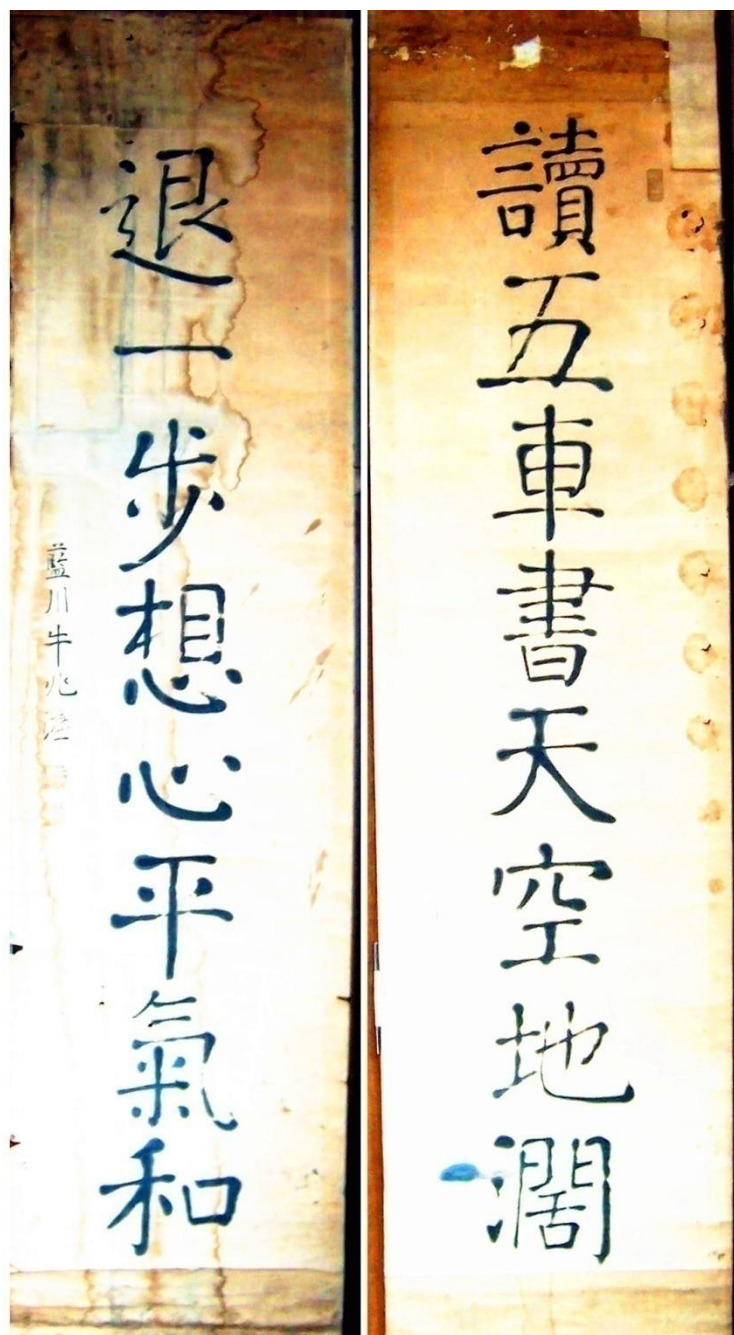 讀五車書天空地濶
退一步想心平氣和
藍川牛兆濂